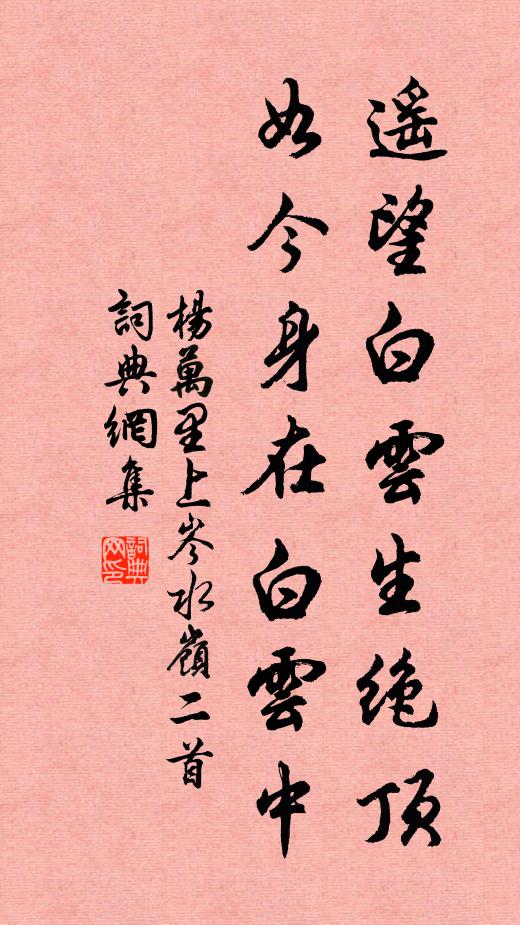 遥望白雲生绝顶
如今身在白雲中
楊萬里上岑水嶺二首
詞典網集
詞典網印